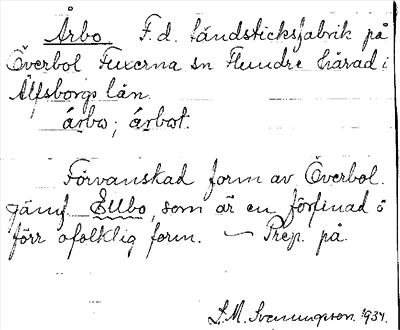 Årbo F.d. tändsticksfabrik på
Överbol Fuxerna sn Flundre härad i
Älfsborgs län.
årbo; årbot.
Förvanskad form av Överbol.
jämf. Ellbo, som är en förfinad o
förr ofolklig form. — Prep. på.
L.M. Svenungsson 1934.